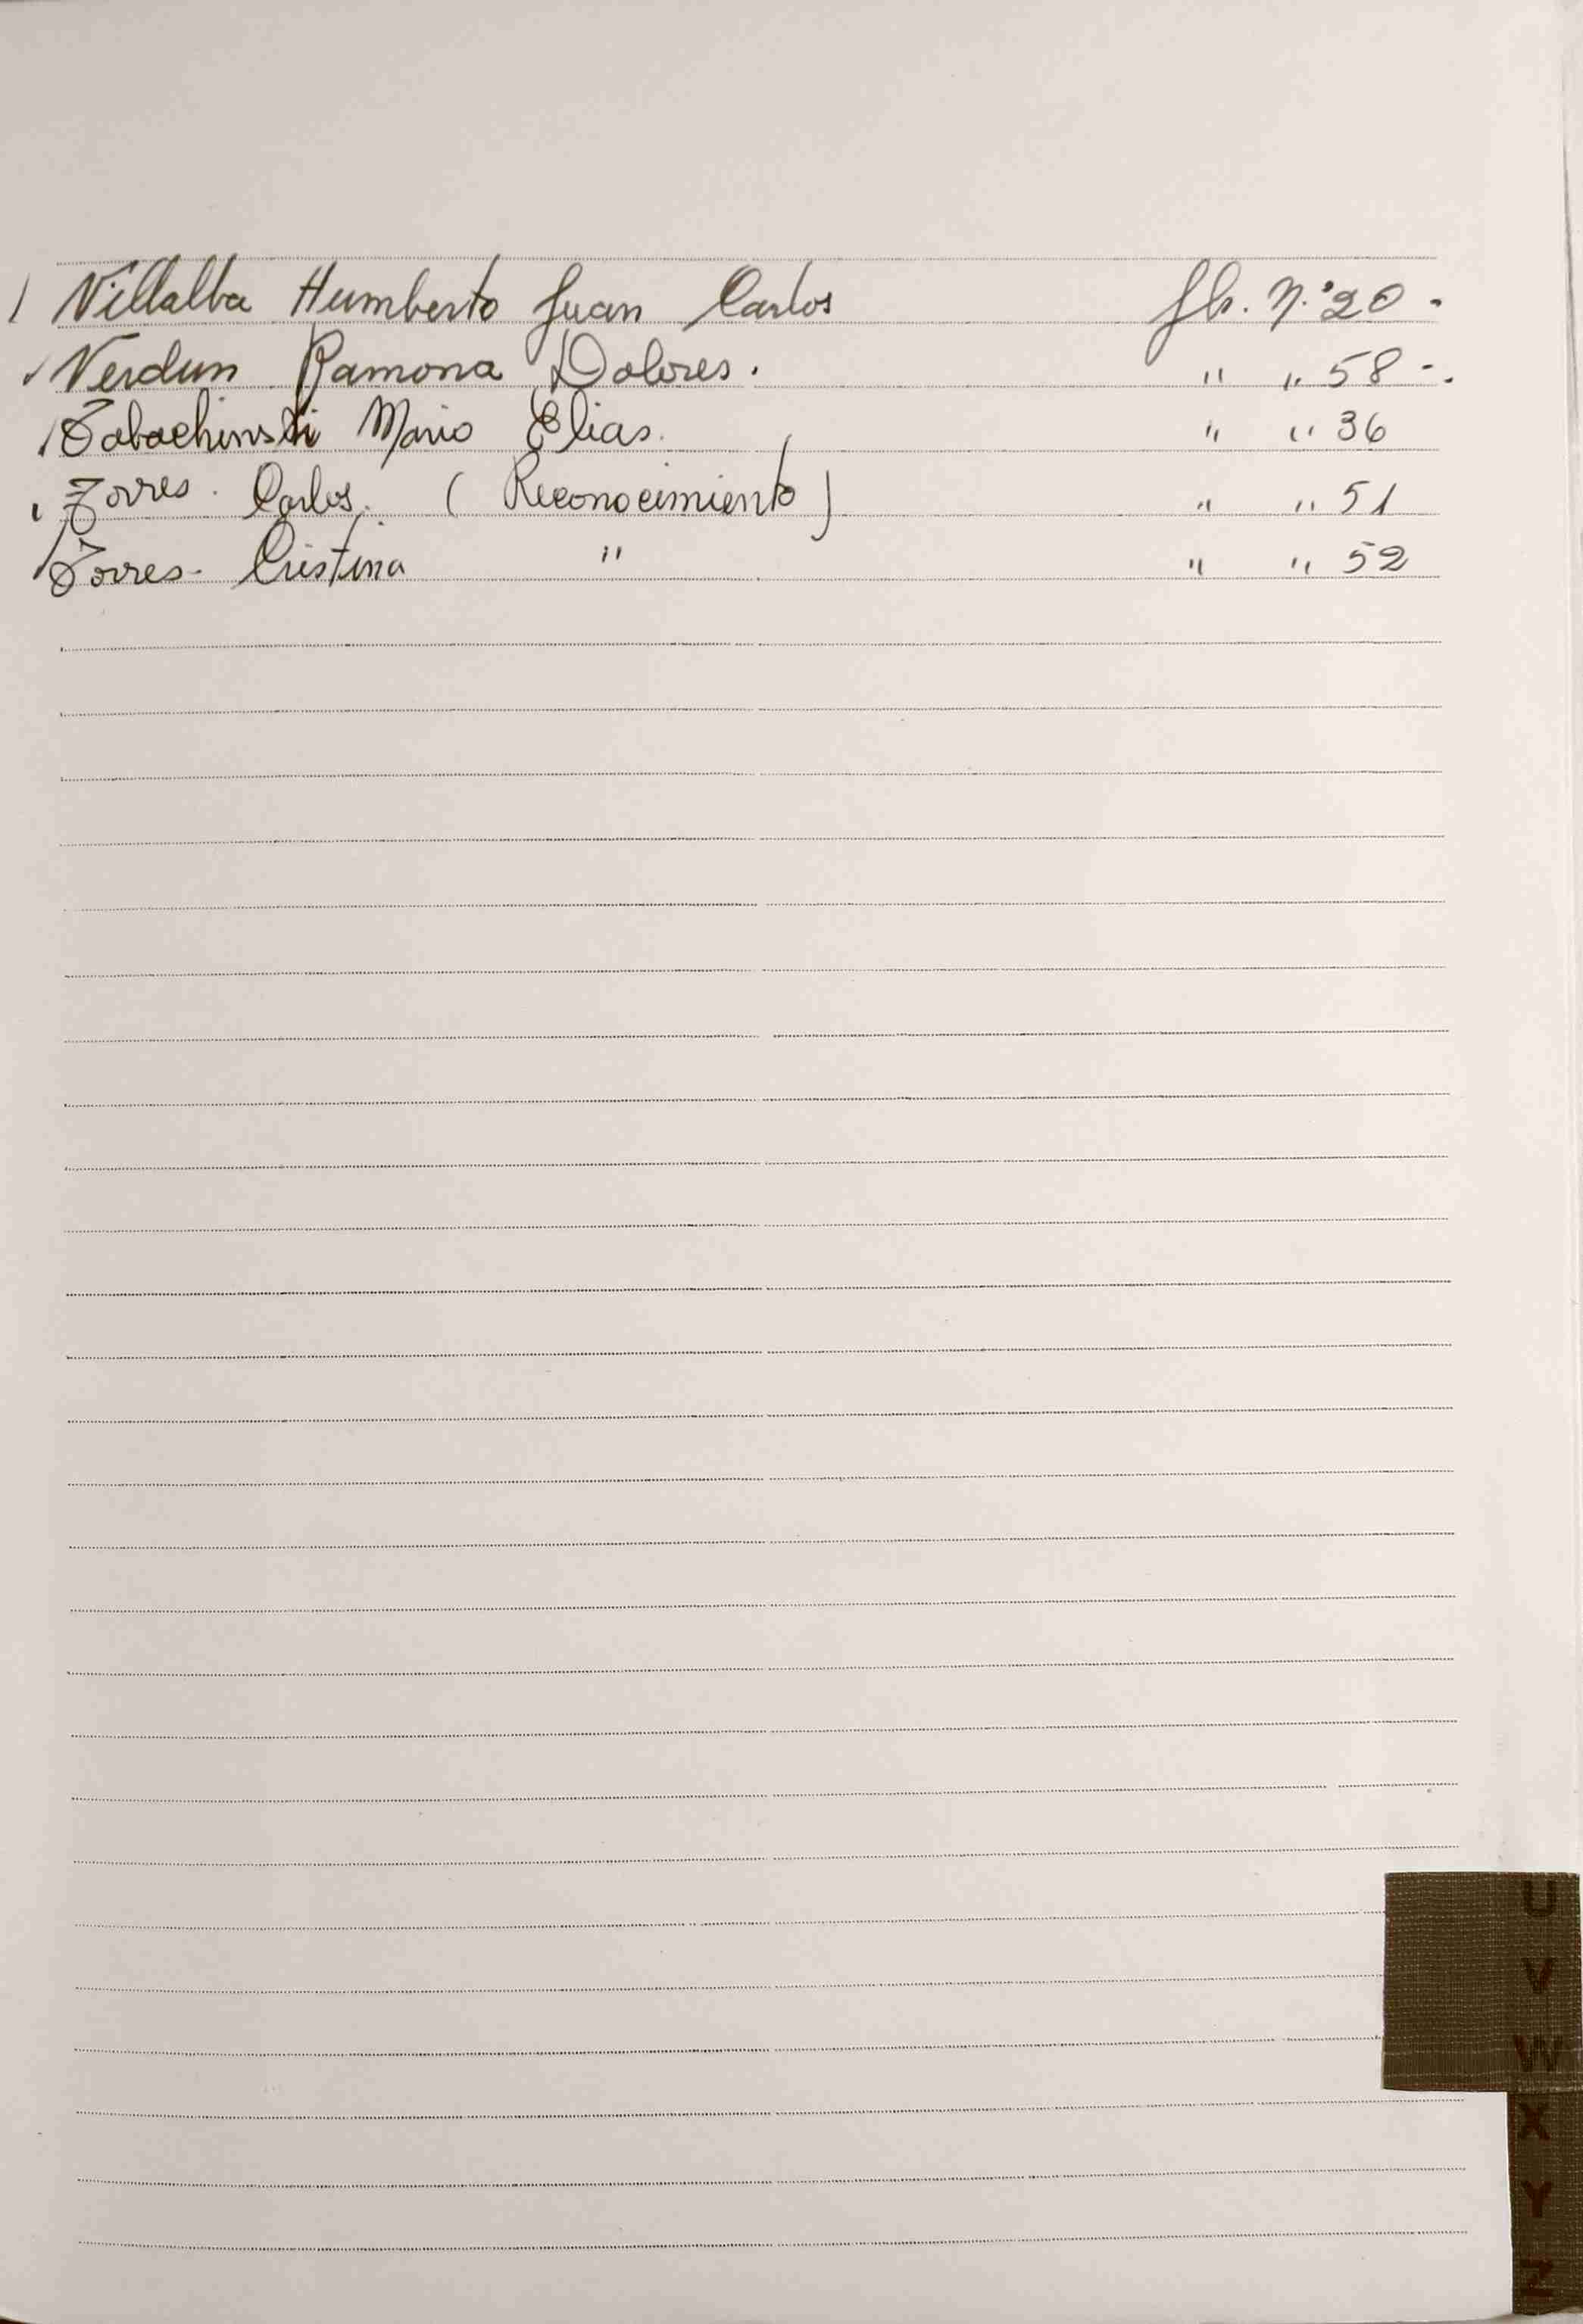 Villalba Humberto Juan Carlos fl. N.º 20.
Verdun Ramona Dolores. " " 58-.
Tabachinski Mario Elias. " " 36
Torres. Carlos. (Reconocimiento) " " 51
Torres- Cristina " " " 52
U
V
W
X
Y
Z